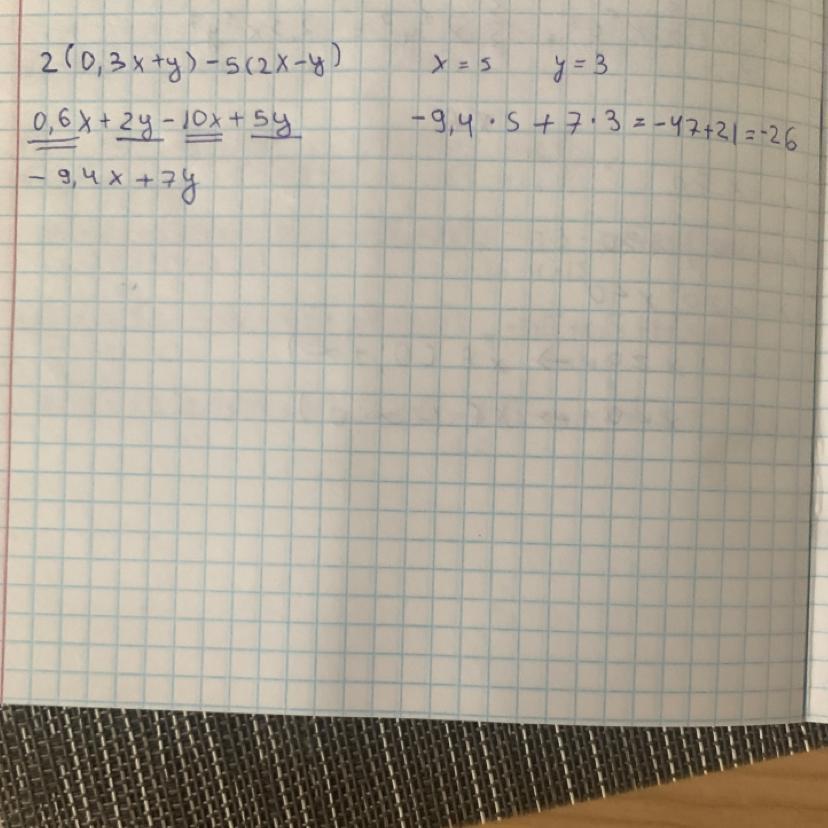 2(0,3x+y)-5(2x-y) x = 5 y = 3
0,6x+2y-10x+5y -9,4 · 5 + 7 · 3 = -47+21=-26
- 9,4x + 7y